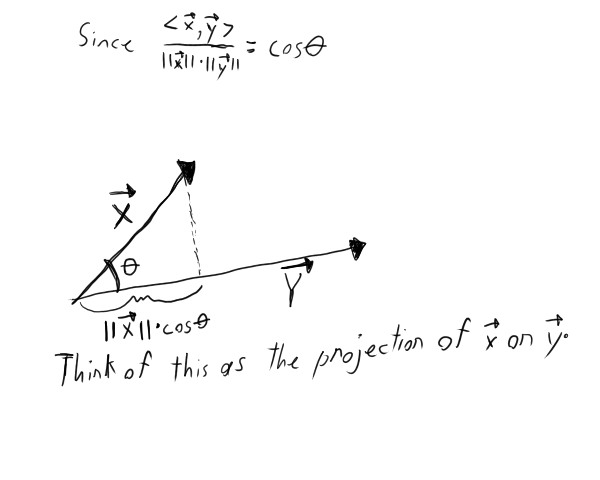 Since <x⃗,y⃗> / ||x⃗||·||y⃗|| = cosθ
X⃗
θ
Y⃗
||X⃗||·cosθ
Think of this as the projection of x⃗ on y⃗.